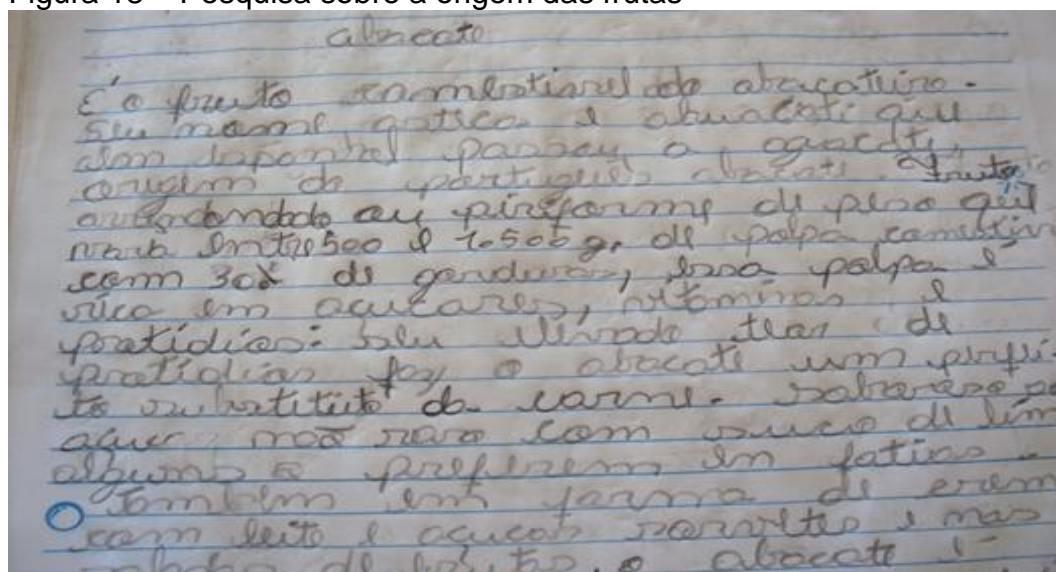 Figura 18 – Pesquisa sobre a origem das frutas
abacate
É o fruto comestiavel do abacatuiro.
Seu nome, e abuacati que
passou a aguacate,
origem do portugues abacati. Fruta
arredondado ou piriforme de peso que
varia entre 500 e 1.500 g. de polpa comestiv
com 30% de gorduras, essa polpa e
rica em açucares, vitaminas e
protidios. Seu elevado teor de
protidios faz o abacate um perfei-
to substituto da carne.
não raro com suco de lim
alguns preferem em fatias.
Tambem em forma de crem
com leite e açucar sorvetes e mas
o abacate é